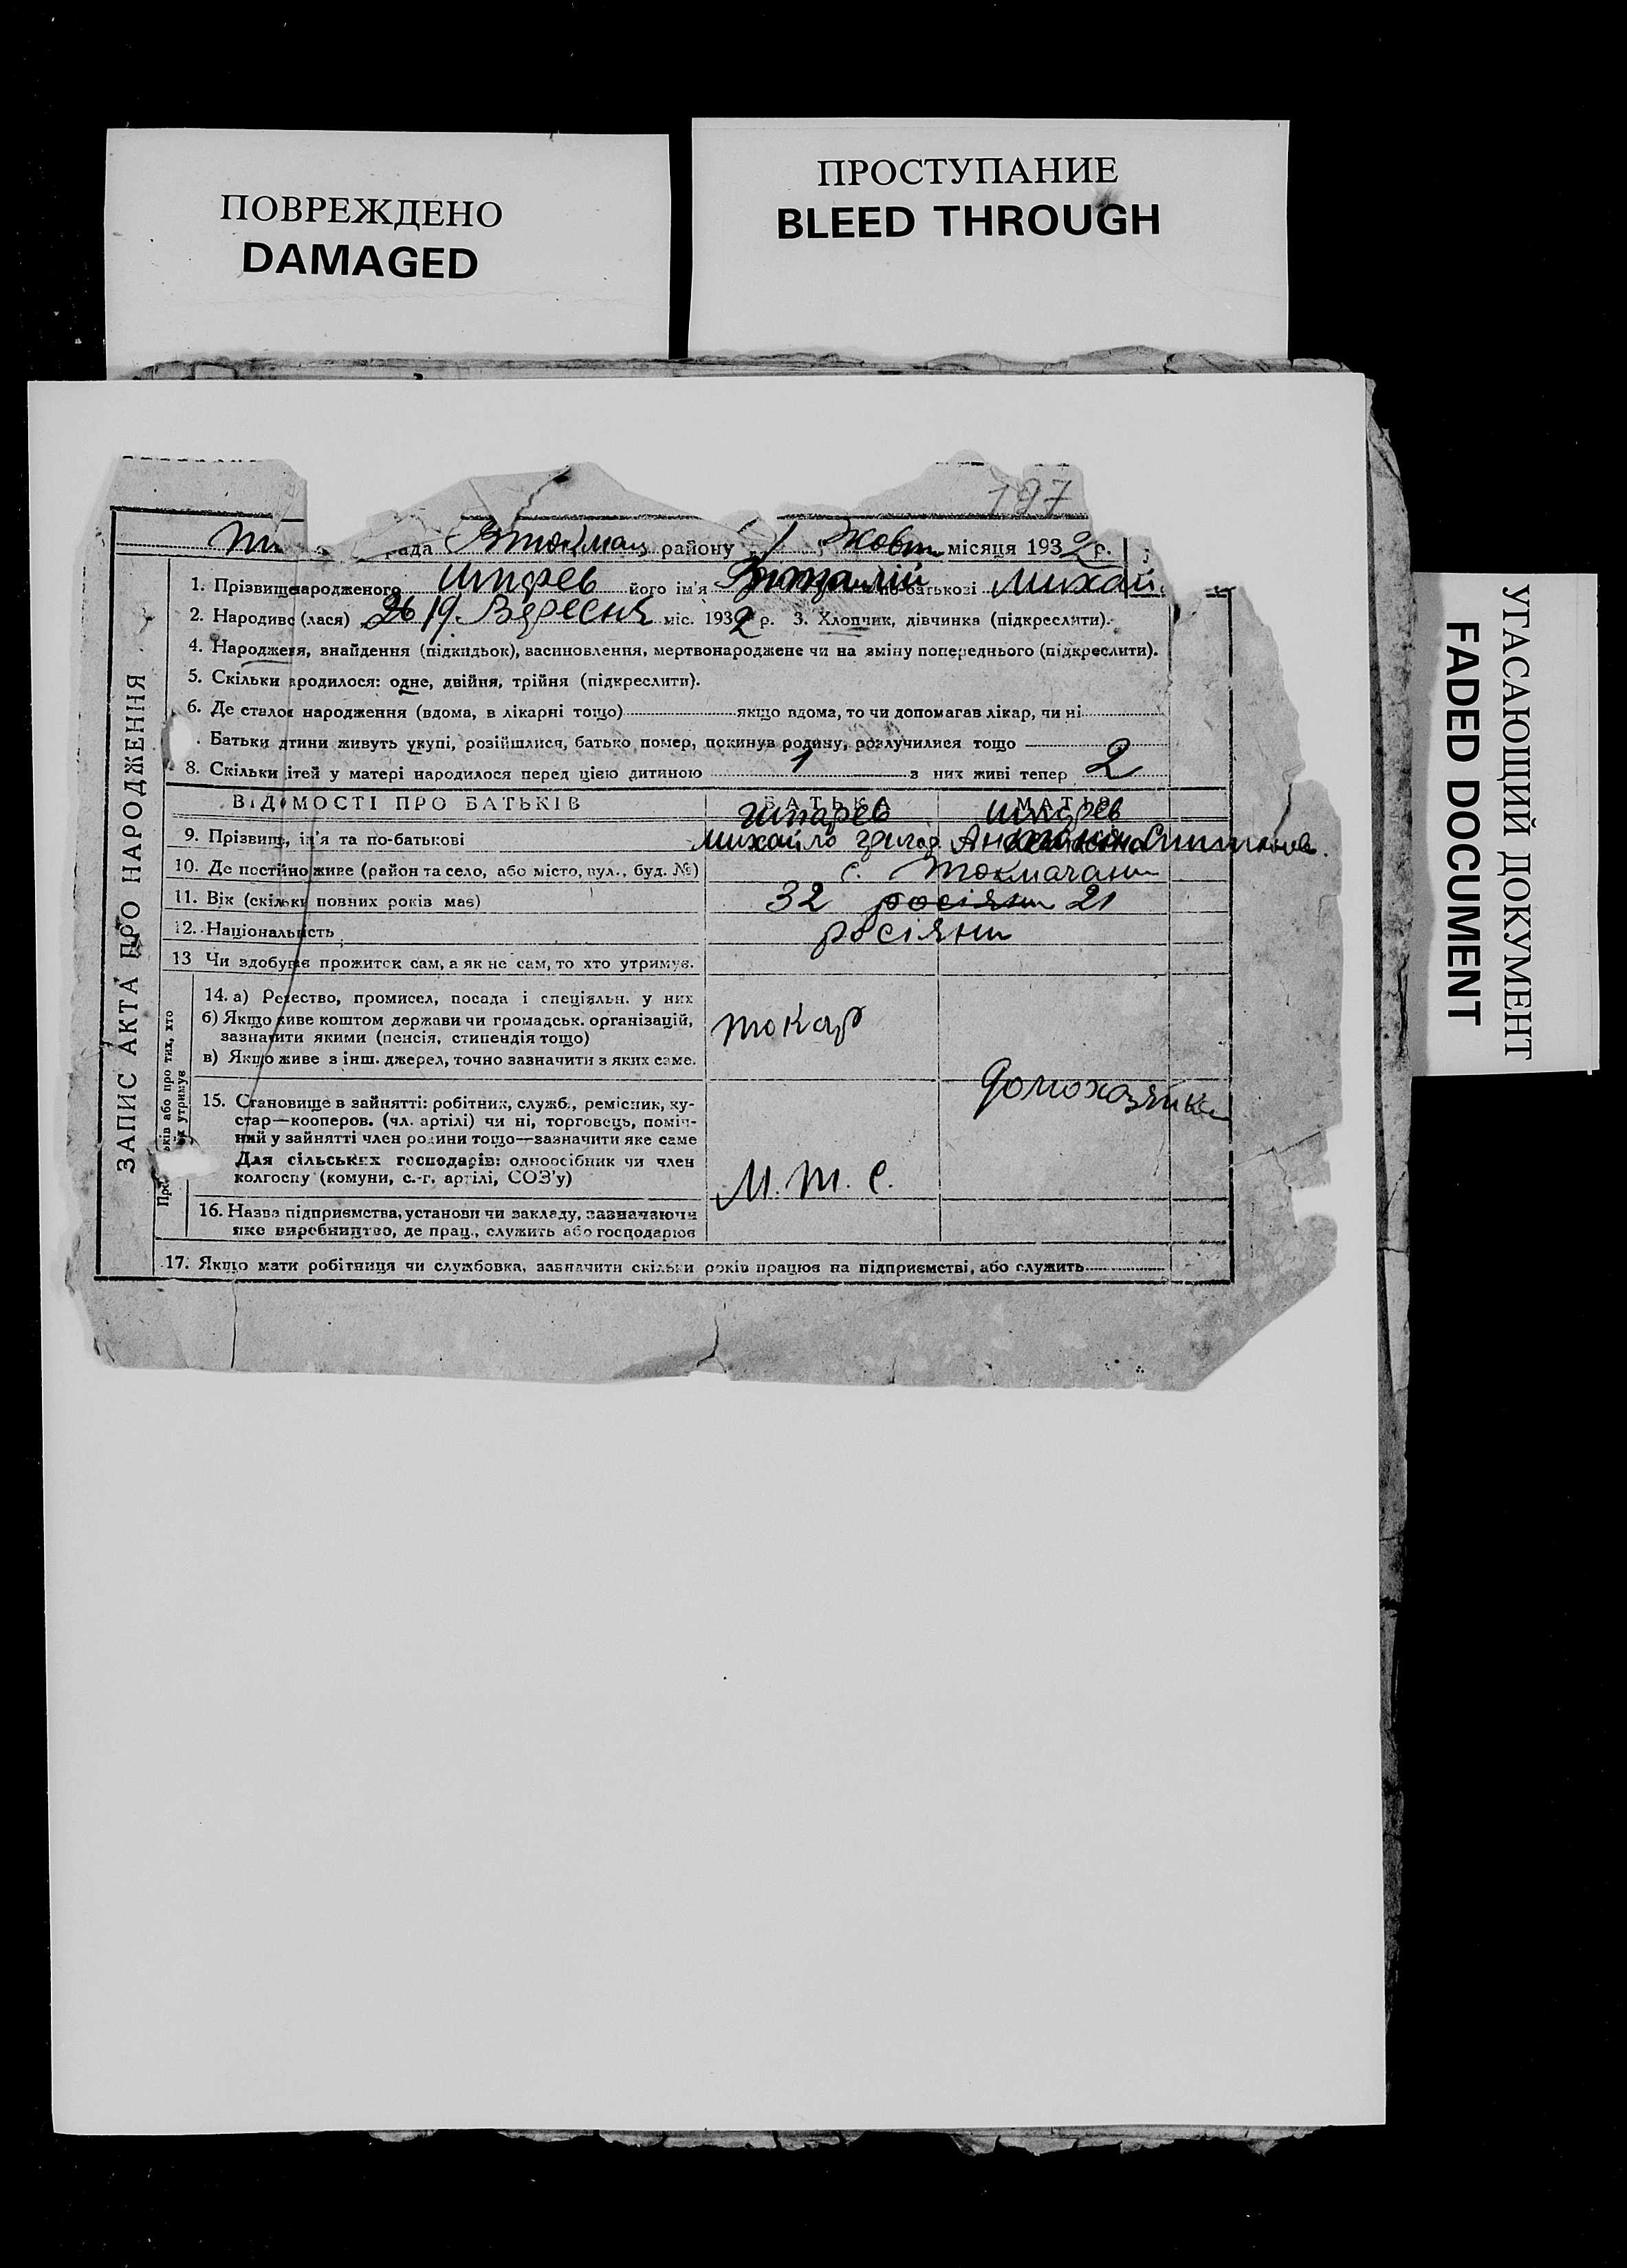 ПОВРЕЖДЕНО
DAMAGED
ПРОСТУПАНИЕ
BLEED THROUGH
УГАСАЮЩИЙ ДОКУМЕНТ
FADED DOCUMENT
197
рада Втокмац району 1 Жовт місяця 1932 р.
ЗАПИС АКТА ПРО НАРОДЖЕННЯ
1. Прізвище народженого його ім'я по-батькові Михай
2. Народивс (лася) 19 Вересня міс. 1932 р. 3. Хлопчик, дівчинка (підкреслити).
4. Народження, знайдення (підкидьок), засиновлення, мертвонароджене чи на зміну попереднього (підкреслити).
5. Скільки вродилося: одне, двійня, трійня (підкреслити).
6. Де сталос народження (вдома, в лікарні тощо) якщо вдома, то чи допомагав лікар, чи ні
. Батьки дтини живуть укупі, розійшлися, батько помер, покинув родину, розлучилися тощо
8. Скільки ітей у матері народилося перед цією дитиною 1 з них живі тепер 2
ВІДОМОСТІ ПРО БАТЬКІВ БАТЬКА МАТІР
9. Прізвищ, ім'я та по-батькові Михайло Григор
10. Де постійно живе (район та село, або місто, вул., буд. №) с. Токмачани
11. Вік (скільки повних років має) 32 росіяни 21
12. Національність росіяни
13 Чи здобував прожиток сам, а як не сам, то хто утримує.
14. а) Ремество, промисел, посада і спеціяльн. у них
б) Якщо живе коштом держави чи громадськ. організацій,
зазначити якими (пенсія, стипендія тощо) токар
в) Якщо живе з інш. джерел, точно зазначити з яких саме.
15. Становище в зайнятті: робітник, служб., ремісник, ку-
стар—кооперов. (чл. артілі) чи ні, торговець, поміч-
ний у зайнятті член родини тощо—зазначити яке саме
Для сільських господарів: одноосібник чи член
колгоспу (комуни, с.-г. артілі, СОЗ'у) М. Т. С.
домохазяйка
16. Назва підприємства, установи чи закладу, зазначаючи
яке виробництво, де прац., служить або господарює
17. Якщо мати робітниця чи службовка, зазначити скільки років працює на підприємстві, або служить